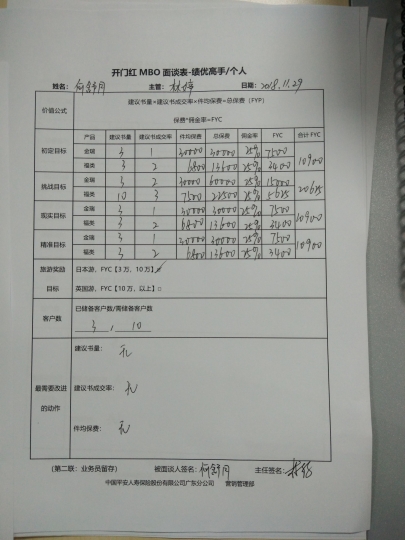 开门红 MBO 面谈表-绩优高手/个人
姓名： 主管： 日期：2018.11.29
价值公式 建议书量×建议书成交率×件均保费=总保费（FYP）
保费*佣金率=FYC
产品 建议书量 建议书成交率 件均保费 总保费 佣金率 FYC 合计 FYC
初定目标 金瑞 3 1 30000 30000 25% 7500 10900
福类 3 2 6800 13600 25% 3400
挑战目标 金瑞 3 2 30000 60000 25% 15000 20625
福类 10 3 7500 22500 25% 5625
现实目标 金瑞 3 1 30000 30000 25% 7500 10900
福类 3 2 6800 13600 25% 3400
精准目标 金瑞 3 1 30000 30000 25% 7500 10900
福类 3 2 6800 13600 25% 3400
旅游奖励目标 日本游，FYC【3 万，10 万】
英国游，FYC【10 万，以上】□
客户数 已储备客户数/需储备客户数
3 , 10
最需要改进的动作
建议书量： 无
建议书成交率： 无
件均保费： 无
（第二联：业务员留存） 被面谈人签名： 主任签名：
中国平安人寿保险股份有限公司广东分公司 营销管理部